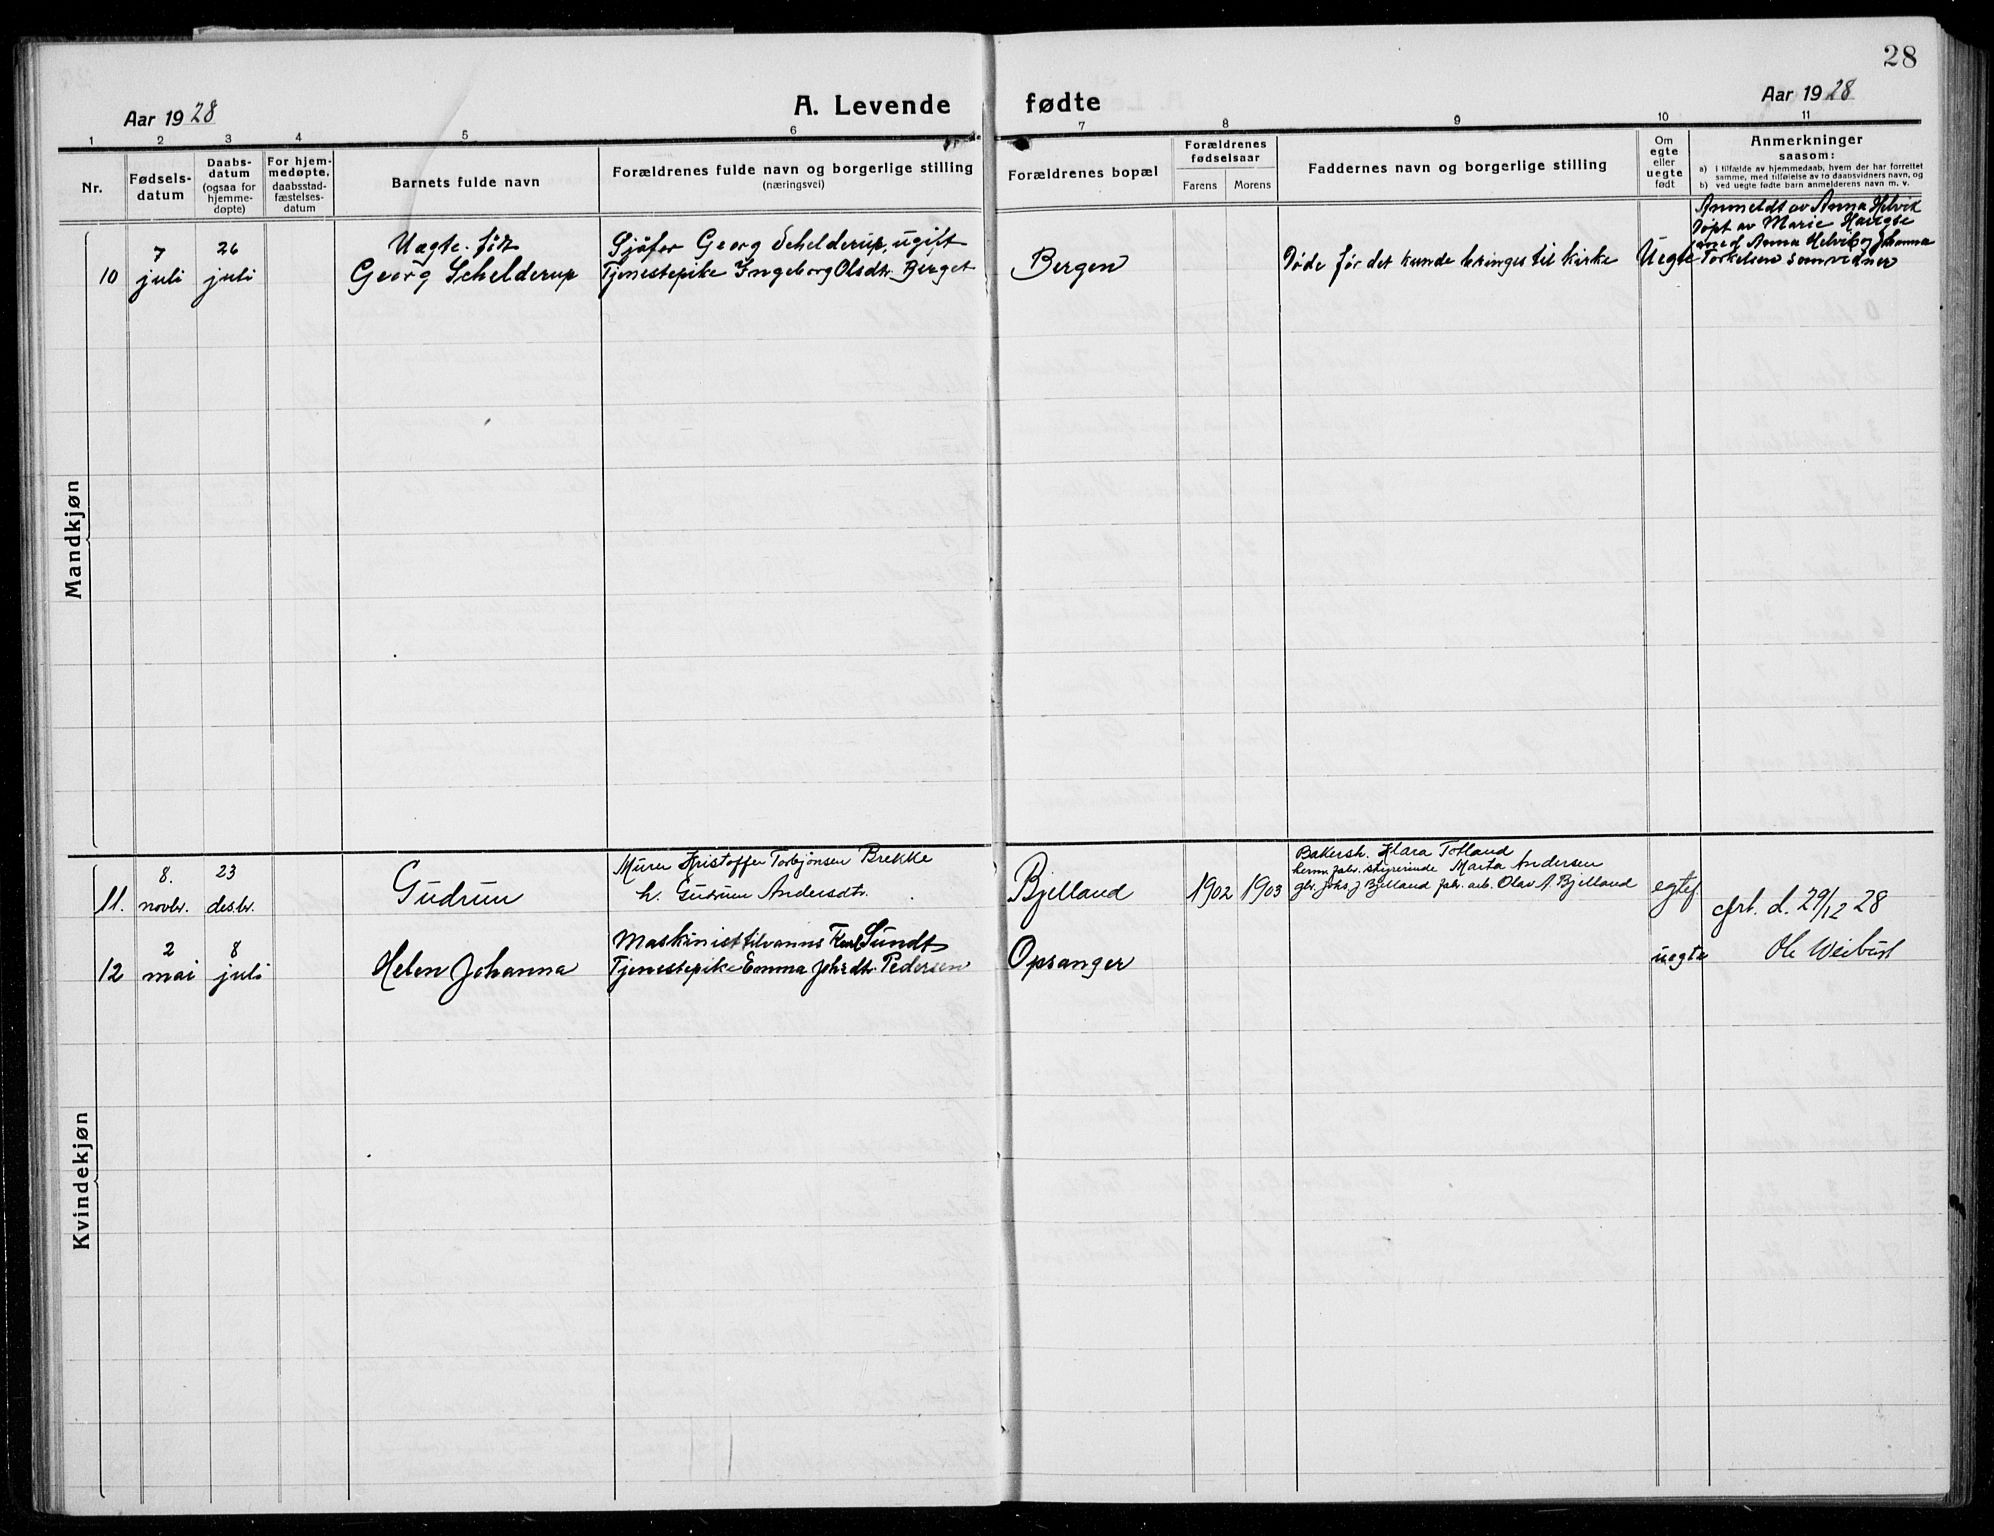 28
Aar 1928
A. Levende fødte
Aar 1928
1 2 3 4 5 6 7 8 9 10 11
Nr.
Fødsels-
datum
Daabs-
datum
(ogsaa for
hjemme-
døpte)
For hjem-
medøpte,
daabsstad-
fæstelses-
datum
Barnets fulde navn
Forældrenes fulde navn og borgerlige stilling
(næringsvei)
Forældrenes bopæl
Forældrenes
fødselsaar
Farens Morens
Faddernes navn og borgerlige stilling
Om
egte
eller
uegte
født
Anmerkninger
saasom:
a) i tilfælde av hjemmedaab, hvem der har forrettet
samme, med tilføielse av to daabsvidners navn, og
b) ved uegte fødte barn anmelderens navn m. v.
Mandkjøn
10
7
juli
26
juli
Uegte. født
Georg Schelderup
Sjåfør Georg Schelderup, ugift
Tjenestepike Ingeborg Olsdtr. Berget
Bergen
Døde før det kunde bringes til kirke
Uegte
Anmeldt av Anna Helvik
Døpt av Marie Haugse
med Anna Helvik og Johanna
Torkelsen som vidner
Kvindekjøn
11.
8.
novbr.
23
desbr.
Gudrun
Murer Kristoffer Torbjönsen Brekke
h. Gudrun Andersdtr.
Bjelland
1902 1903
Bakersh. Klara Totland
herm. fabr. styrerinde Marta Andersen
gbr. Johs J Bjelland fabr. arb. Olav A. Bjelland
egtef.
frt. d. 29/12 28
12
2
mai
8
juli
Helen Johanna
Maskinist tilvanns Karl Sundt
Tjenestepike Emma Johsdtr. Pedersen
Opsanger
uegte
Ole Weibust